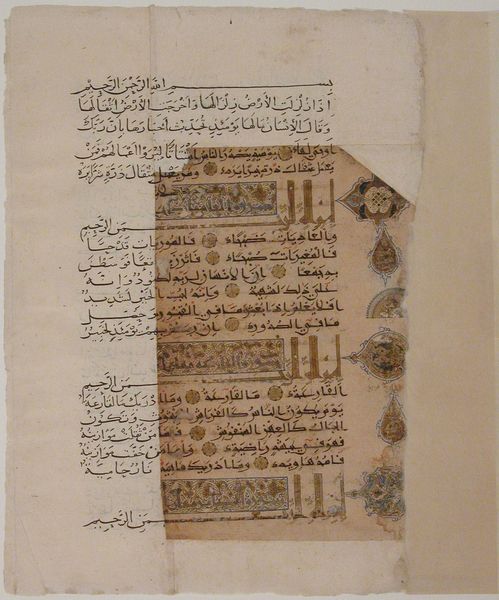 بسم الله الرحمن الرحيم
اذا زلزلت الأرض زلزالها واخرجت الأرض اثقالها
وقال الانسان مالها يومئذ تحدث اخبارها بان ربك
اوحى لها يومئذ يصدر الناس اشتاتا ليروا اعمالهم فمن
يعمل مثقال ذرة خيرا يره ومن يعمل مثقال ذرة شرا يره
بسم الله الرحمن الرحيم
والعاديات ضبحا فالموريات قدحا
فالمغيرات صبحا فاثرن به نقعا فوسطن
به جمعا ان الانسان لربه لكنود وانه
على ذلك لشهيد وانه لحب الخير لشديد
افلا يعلم اذا بعثر ما في القبور وحصل
ما في الصدور ان ربهم بهم يومئذ لخبير
بسم الله الرحمن الرحيم
القارعة ما القارعة وما ادريك ما القارعة
يوم يكون الناس كالفراش المبثوث وتكون
الجبال كالعهن المنفوش فاما من ثقلت موازينه
فهو في عيشة راضية واما من خفت موازينه
فامه هاوية وما ادريك ماهيه نار حامية
بسم الله الرحمن الرحيم